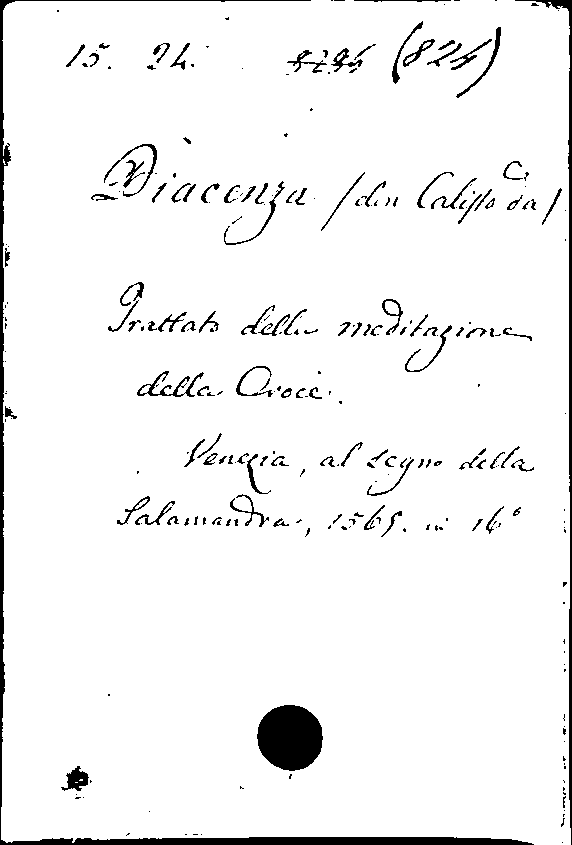 15. 24. 8796 (824)
Piacenza (don Calisto da)
Trattato della meditazione
della Croce.
Venezia, al segno della
Salamandra, 1565. in 16°